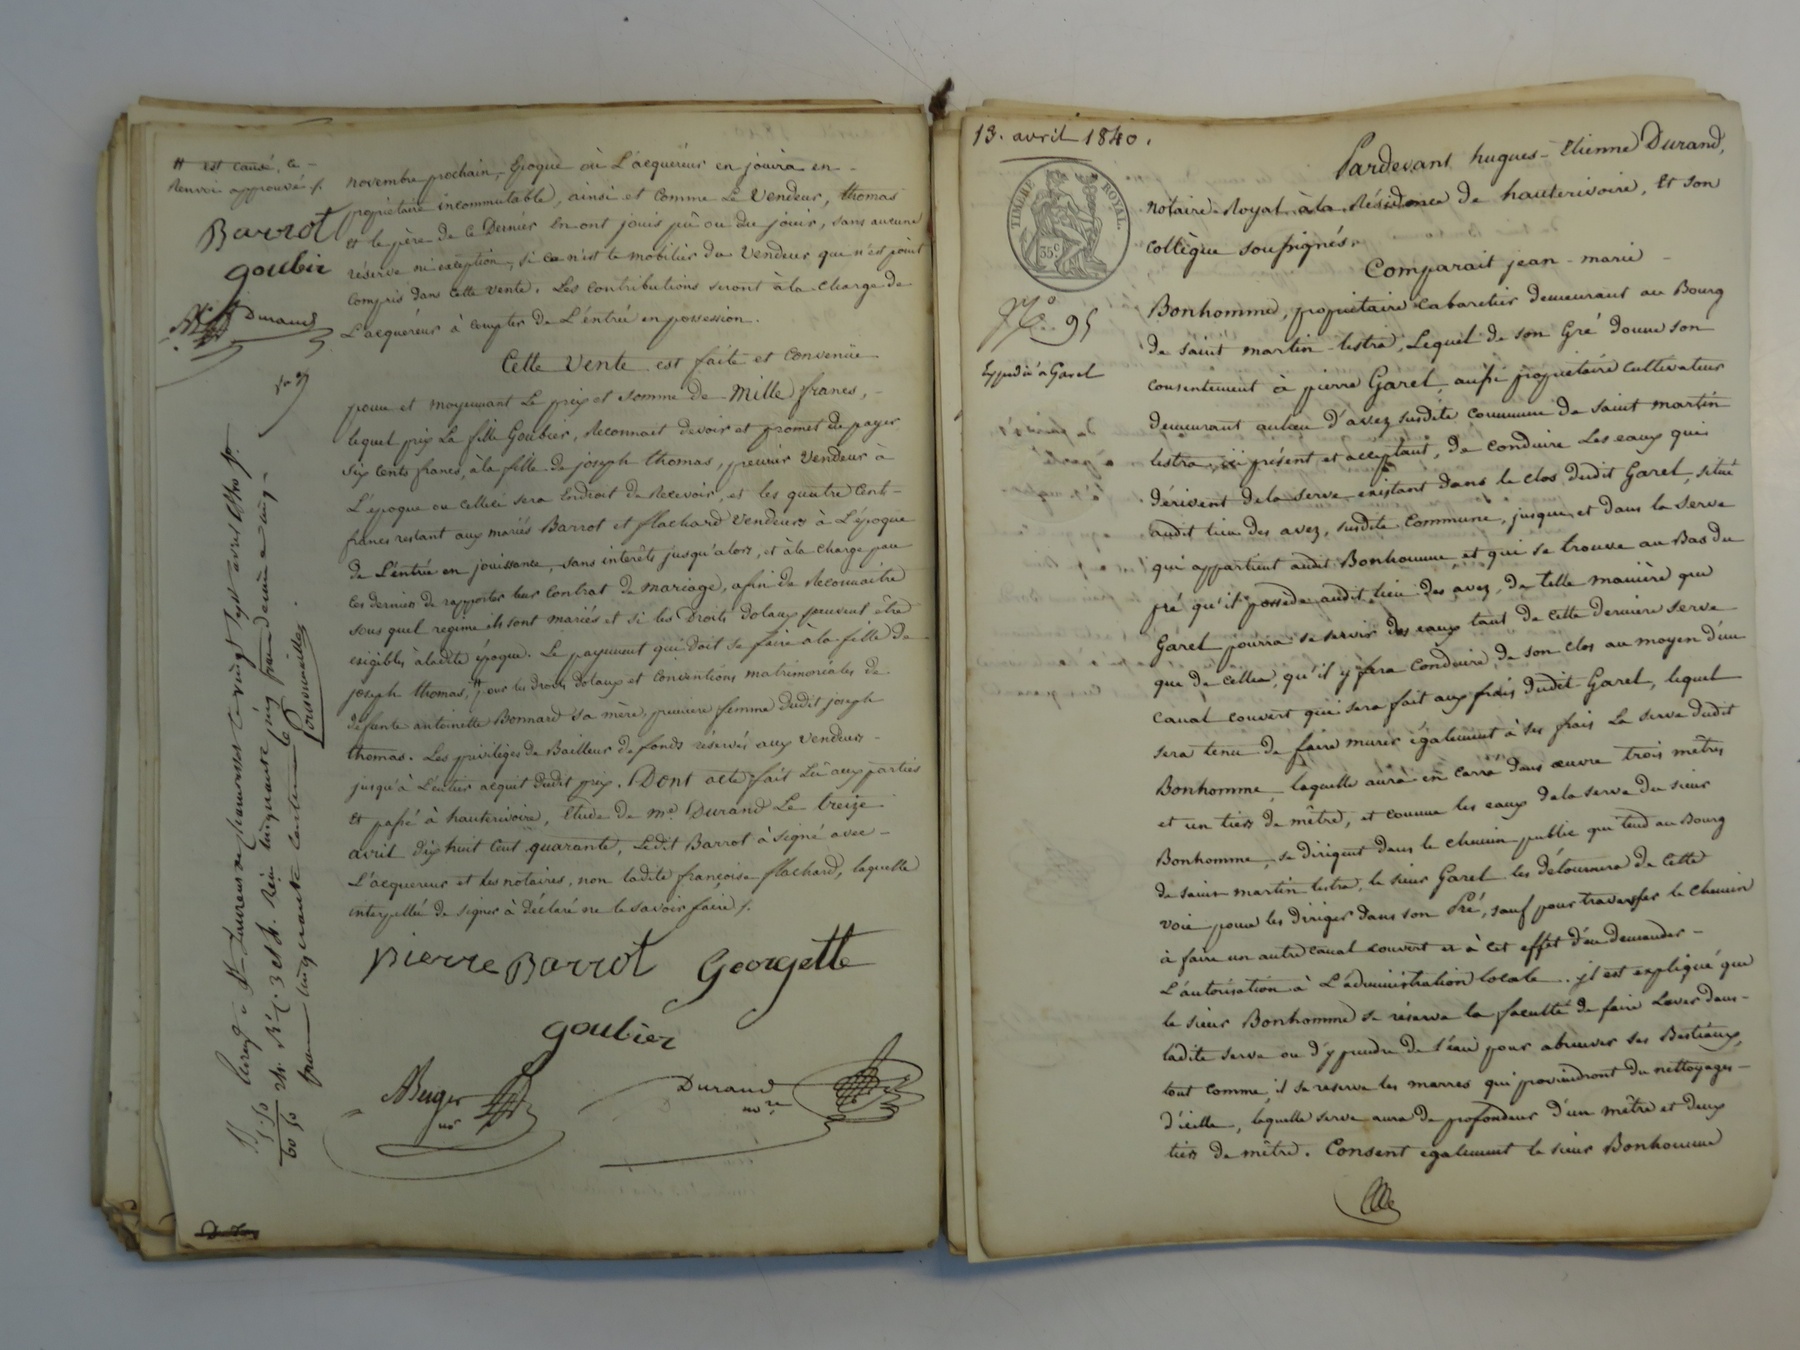 # est causé, ce
Renvoi approuvé /.
Barrot
goubier
Durand
novembre prochain, époque où L'acquéreur en jouira en
propriétaire incommutable, ainsi et comme Le Vendeur, thomas
et le père de ce Dernier en ont jouis pû ou du jouir, sans aucune
réserve ni exception, si ce n'est le mobilier du Vendeur qui n'est point
compris dans cette vente. Les contributions seront à la charge de
L'acquéreur à compter de L'entrée en possession.
Cette Vente est faite et Convenüe
pour et moyennant Le prix et somme de Mille francs,
lequel prix La fille Goubier, Reconnait devoir et promet de payer
six cents francs, à la fille de joseph thomas, premier Vendeur à
L'époque ou celleci sera Endroit de Recevoir, et les quatre Cent
francs restant aux mariés Barrot et flachard Vendeurs à L'époque
de L'entrée en jouissance, sans intérêts jusqu'alors, et à la charge par
ces derniers de rapporter leur Contrat de mariage, afin de Reconnaitre
sous quel regime ils sont mariés et si les Droits dotaux peuvent être
exigibles à ladite époque. Le payement qui doit se faire à la fille de
joseph thomas, # pour les droits dotaux et Conventions matrimoniales de
défunte antoinette Bonnard sa mère, premiere femme dudit joseph
thomas. Les privilèges de Bailleur de fonds réservés aux Vendeurs
jusqu'à L'entier acquit dudit prix. Dont acte fait Lû aux parties
et passé à hauterivoire, Etude de me. Durand Le treize
avril dix huit Cent quarante, Ledit Barrot à signé avec
L'acquereur et les notaires, non ladite françoise flachard, laquelle
interpellée de signer à déclaré ne le savoir faire /.
pierre Barrot Georgette
goubier
Durand
nore
13. avril 1840.
TIMBRE ROYAL
35c
No. 95
Expedié à Garel
Pardevant hugues-Etienne Durand,
notaire Royal à la Résidence de hauterivoire, Et son
collègue soussignés.
Comparait jean-marie
Bonhomme, propriétaire cabaretier demeurant au Bourg
de saint martin-lestra, Lequel de son Gré donne son
consentement à pierre Garel, aussi propriétaire cultivateur
demeurant au lieu d'avez susdite commune de saint martin
lestra, ici présent et acceptant, de conduire Les eaux qui
dérivent de la serve existant dans le clos dudit Garel, situé
audit lieu des avez, susdite Commune, jusque et dans la serve
qui appartient audit Bonhomme et qui se trouve au Bas du
pré qu'il possede audit lieu des avez, de telle manière que
Garel pourra se servir des eaux tant de cette dernière serve
que de celles, qu'il y fera Conduire, de son clos au moyen d'un
canal couvert qui sera fait aux frais dudit Garel, lequel
sera tenu de faire murer également à ses frais La serve dudit
Bonhomme, laquelle aura en carré dans œuvre trois mètres
et un tiers de mètre, et comme les eaux de la serve du sieur
Bonhomme, se dirigent dans le chemin public qui tend au Bourg
de saint martin lestra, le sieur Garel les détournera de cette
voie pour les diriger dans son Pré, sauf pour traverser le chemin
à faire un autre canal couvert et à cet effet d'en demander
L'autorisation à L'administration locale.. il est expliqué que
le sieur Bonhomme se réserve la faculté de faire Laver dans
ladite serve ou d'y prendre de l'eau pour abreuver ses Bestiaux,
tout comme il se reserve les marres qui proviendront du nettoyages
d'icelle, laquelle serve aura de profondeur d'un mètre et deux
tiers de mètre. Consent également le sieur Bonhomme